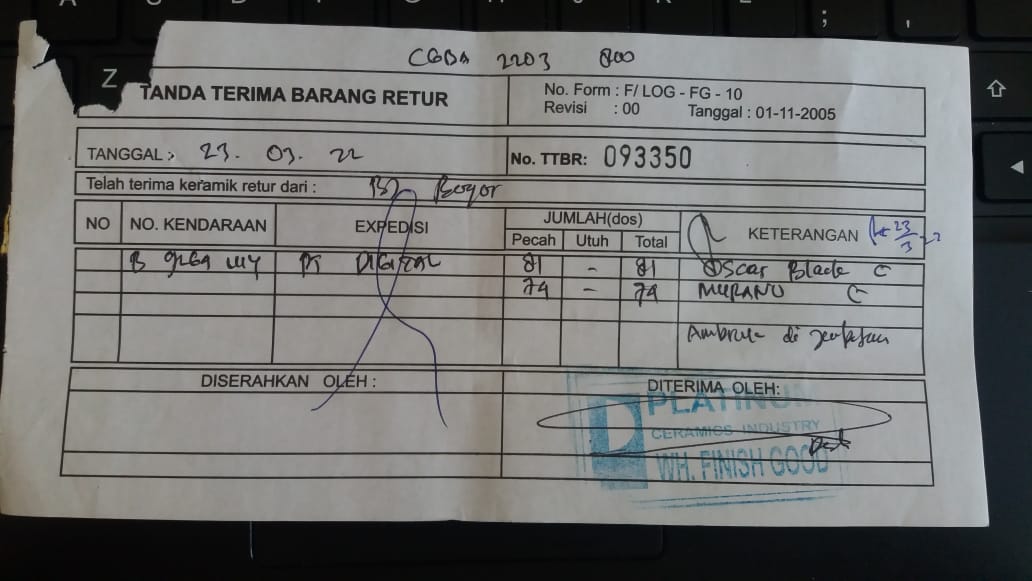 CGBA 2203 800
TANDA TERIMA BARANG RETUR
No. Form : F/ LOG - FG - 10
Revisi : 00 Tanggal : 01-11-2005
TANGGAL : 23. 03. 22
No. TTBR: 093350
Telah terima keramik retur dari : Bogor
NO NO. KENDARAAN EXPEDISI JUMLAH(dos) KETERANGAN 23/3-22
Pecah Utuh Total
B PT DIGITAL 81 - 81 Oscar Black C
74 - 74 MURANO C
di
DISERAHKAN OLEH : DITERIMA OLEH:
PLATINUM
CERAMICS INDUSTRY
WH. FINISH GOOD